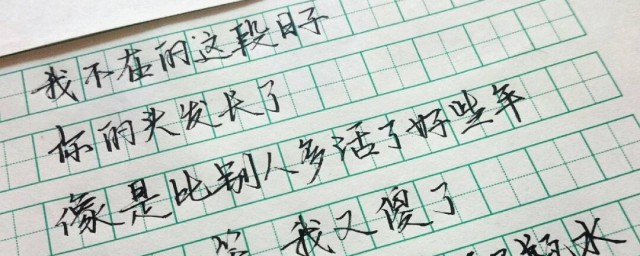 我不在的这段日子
你的头发长了
像是比别人多活了好些年
我又傻了
水